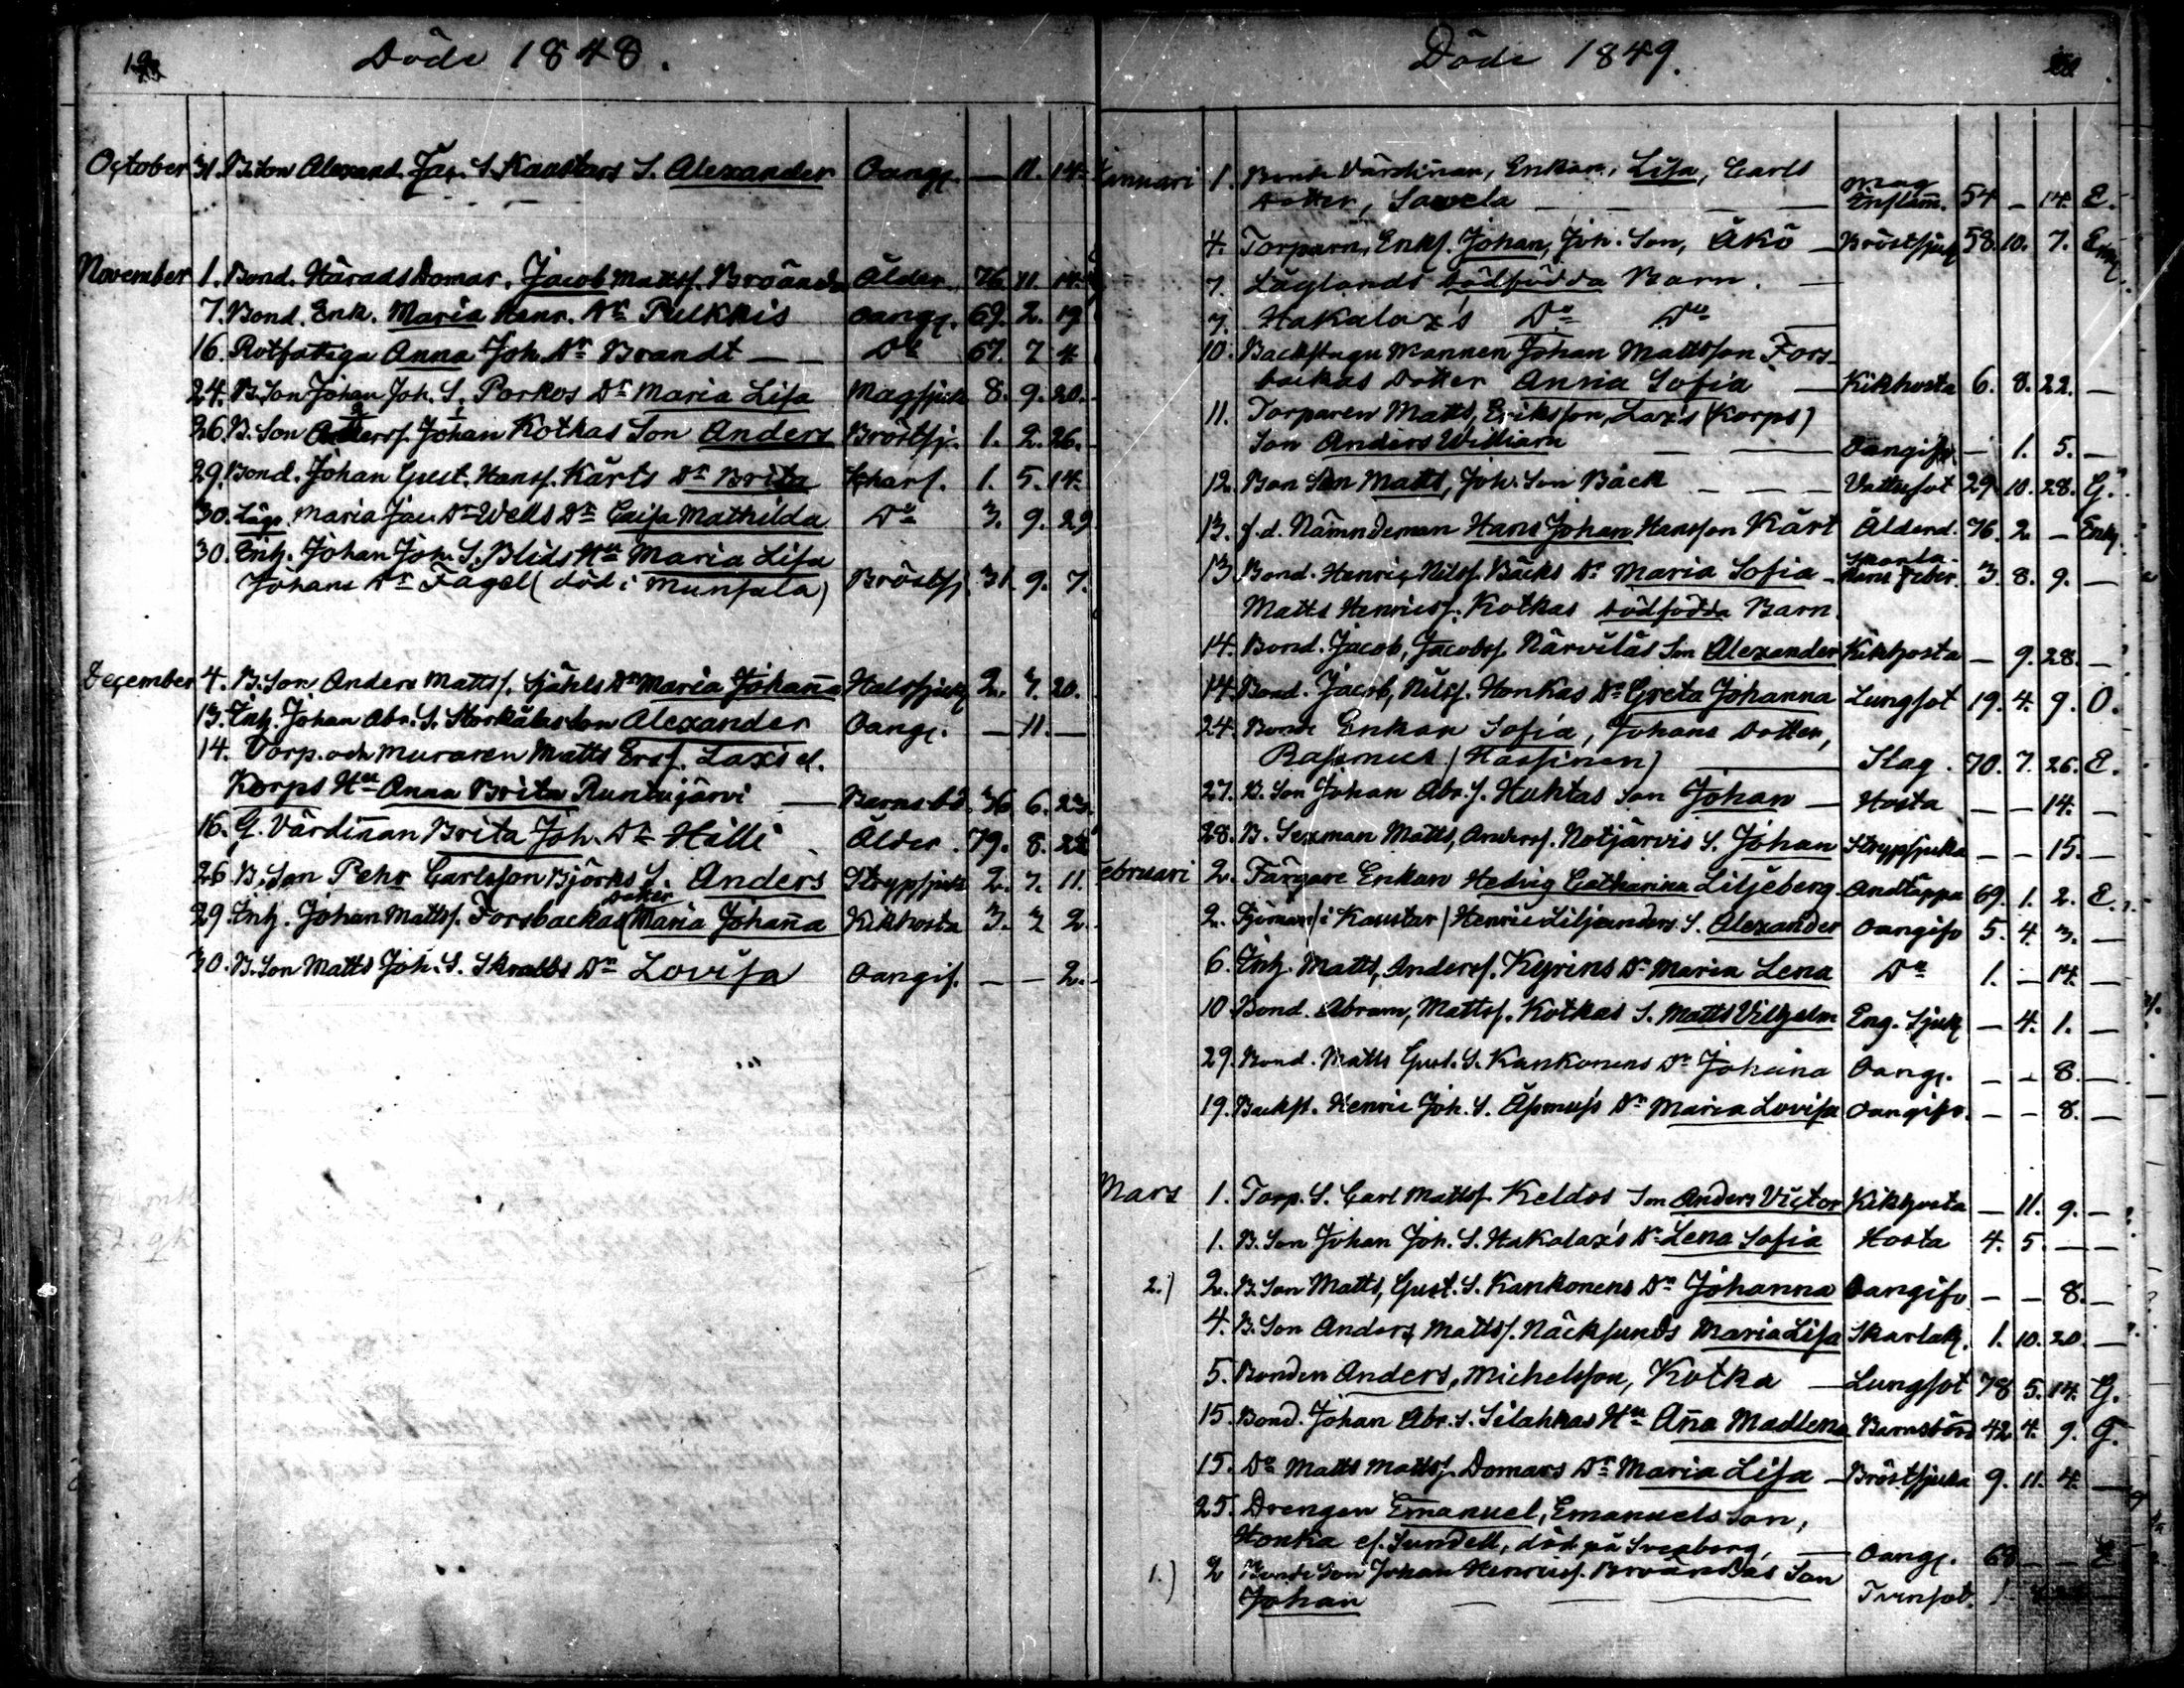 Döde 1848.
October 31. B. Son Alexand. Jac. S. Kaustars S. Alexander Oang. — 11. 14.
November 1. Bond. Härads Domar. Jacob Mattss. Broända Ålder. 76. 11. 14.
7. Bond. Enk. Maria Henr. Dr Pulkkis Oang. 69. 2. 19
16. Rotfattiga Anna Joh. Dr Brandt — Do 67. 7 4.
24. B. Son Johan Joh. S. Porkos Dr Maria Lisa Magsjuk 8. 9. 20.
26. B. Son Anderss. Johan Kotkas Son Anders Bröstsj. 1. 2. 26.
29. Bond. Johan Gust. Hanss. Kärts Dr Brita Skarl. 1. 5. 14.
30. Lägs. Maria Jac. Dr Wells Dr Caisa Mathilda Do 3. 9. 29
30. Inh. Johan Joh. S. Blids Hu Maria Lisa
Johans Dr Fågel (död i Munsala) Bröstsj. 31. 9. 7.
December 4. B. Son Anders Mattss. Sjähls Dr Maria Johana Halssjuk 2. 7. 20.
13. Inh. Johan Abr. S. Storkåhls Son Alexander Oang. — 11. —
14. Torp. och Muraren Matts Erss. Laxs el.
Korps Hu Anna Brita Runtujärvi — Barnsbö. 36. 6. 23.
16. G. Värdinan Brita Joh. Dr Hilli Ålder. 79. 8. 22
26. B. Son Pehr Carlsson Björks S. Anders Strypsjuk 2. 7. 11.
29 Inh. Johan Mattss. Forsbackas doter Maria Johana Kikhosta 3. 3 2.
30. B. Son Matts Joh. S. Skrabbs Dr Lovisa Oangif. — — 2.
Döde 1849.
Januari 1. Bonde Värdinan, Enkan, Lisa, Carls
Dotter, Sawela — — — — Mag Inflam. 54 — 14. E.
4. Torparn, Enkl. Johan, Joh. Son, Åkö — Bröstsjuk 58. 10. 7. Enkl.
7. Läglands dödfödda Barn. —
7. Hakalax's Do Do —
10. Backstugu Mannen Johan Mattsson Fors-
backas Dotter Anna Sofia — Kikhosta 6. 8. 22. —
11. Torparen Matts, Eriksson, Lax's (Korps)
Son Anders William — — Oangifv. — 1. 5. —
12. Bon Son Matts, Joh. Son Bäck — — — Vattusot 29 10. 28. G.
13. f.d. Nämndeman Hans Johan Hansson Kärt Ålderd. 76. 2 — Enkl.
13. Bond. Henric Nilss. Bäcks Dr Maria Sofia — Skarla- kans feber. 3 8. 9. —
Matts Henricss. Kotkas dödfödda Barn.
14. Bond. Jacob, Jacobss. Närviläs Son Alexander Kikhosta — 9. 28. —
14. Bond. Jacob, Nilss. Honkas Dr Greta Johanna Lungsot 19. 4. 9. O.
24. Bonde Enkan Sofia, Johans Dotter,
Rasmus (Hassinen) — Slag. 70. 7. 26. E.
27. B. Son Johan Abr. S. Huhtas Son Johan — Hosta — — 14. —
28. B. Sexman Matts, Anderss. Notjärvis S. Johan Strypsjuka — — 15. —
Februari 2. Färgare Enkan Hedvig Catharina Liljeberg Andtäppa 69. 1. 2. E.
2. Sjöman (i Kaustar) Henric Liljanders S. Alexander Oangifv 5. 4. 3. —
6. Inh. Matts, Anderss. Kyrins Dr Maria Lena Do 1. — 14. —
10 Bond. Abram, Mattss. Kotkas S. Matts Vilhelm Eng. Sjuk — 4. 1. —
29. Bond. Matts Gust. S. Kankonens Dr Johanna Oang. — — 8. —
19. Backst. Henric Joh. S. Åsmus's Dr Maria Lovisa Oangifv. — — 8. —
Mars 1. Torp. S. Carl Mattss. Keldos Son Anders Victor Kikhosta — 11. 9. —
1. B. Son Johan Joh. S. Hakalax's Dr Lena Sofia Hosta 4. 5. — —
2.) 2. B. Son Matts, Gust. S. Kankonens Dr Johanna Oangifv — — 8. —
4. B. Son Anders Mattss. Näcksunds Maria Lisa Skarlak. 1. 10. 20. —
5. Bonden Anders, Michelsson, Kotka — Lungsot 78 5. 14. G.
15. Bond. Johan Abr. S. Silahkas Hu Aña Madlena Barnsbörd 42 4. 9. G.
15. Do Matts Mattss. Domars Dr Maria Lisa — Bröstsjuka 9. 11. 4. —
25. Drengen Emanuel, Emanuels Son,
Honka el. Sundell, död på Sveaborg, — Oang. 68 — —
1.) 2 Bonde Son Johan Henricss. Broändas Son
Johan — — — Tvinsot. 1.